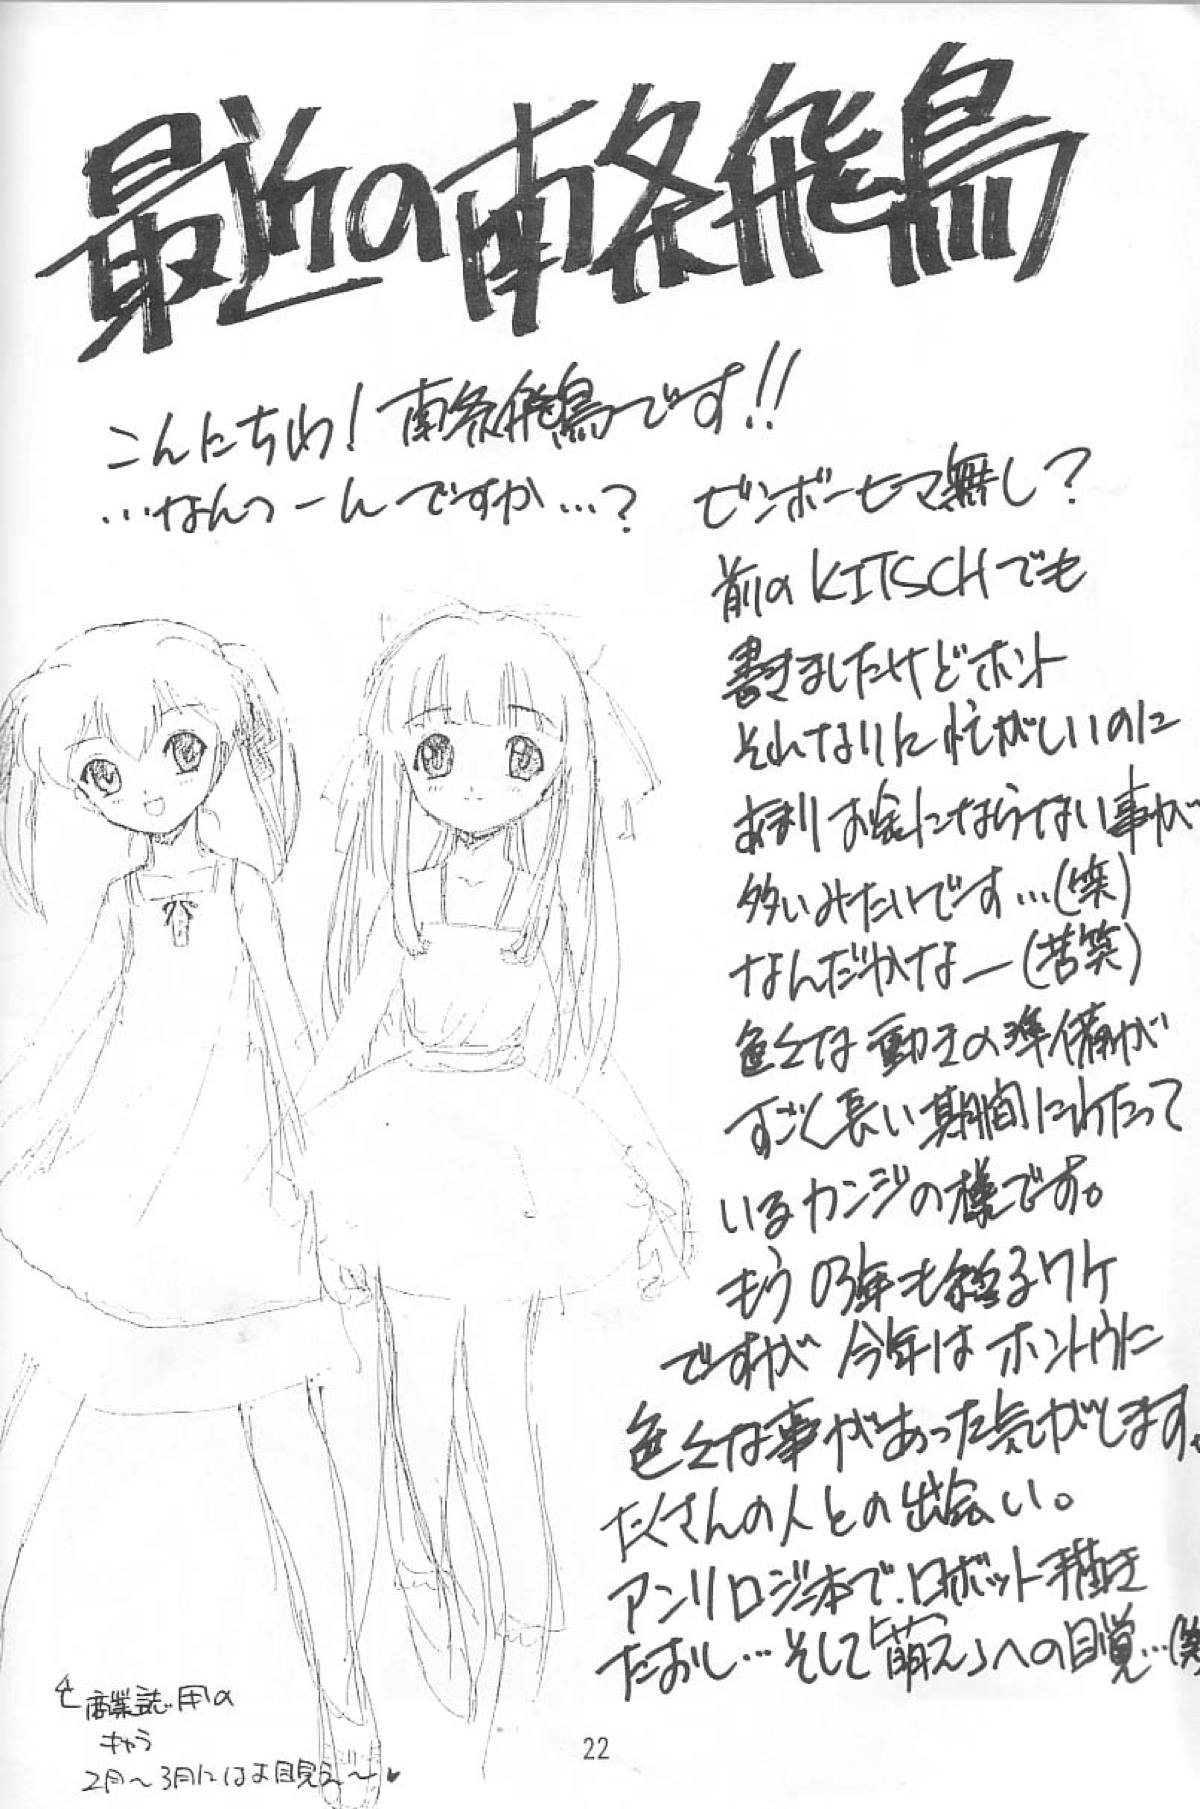 最近の南条飛鳥
こんにちわ!南条飛鳥です!!
…なんつーんですか…? ビンボーヒマ無し?
前のKITSCHでも
書きましたけどホント
それなりに忙がしいのに
あまりお金にならない事が
多いみたいです…(笑)
なんだかなー(苦笑)
色々な動きの準備が
すごく長い期間にわたって
いるカンジの様です。
もう03年も終るワケ
ですが今年はホントウに
色々な事があった気がします。
たくさんの人との出会い。
アンソロジー本で、ロボット描き
たおし…そして「萌え」への目覚…(笑)
商業誌用の
キャラ
2月〜3月にはお目見え〜♥
22